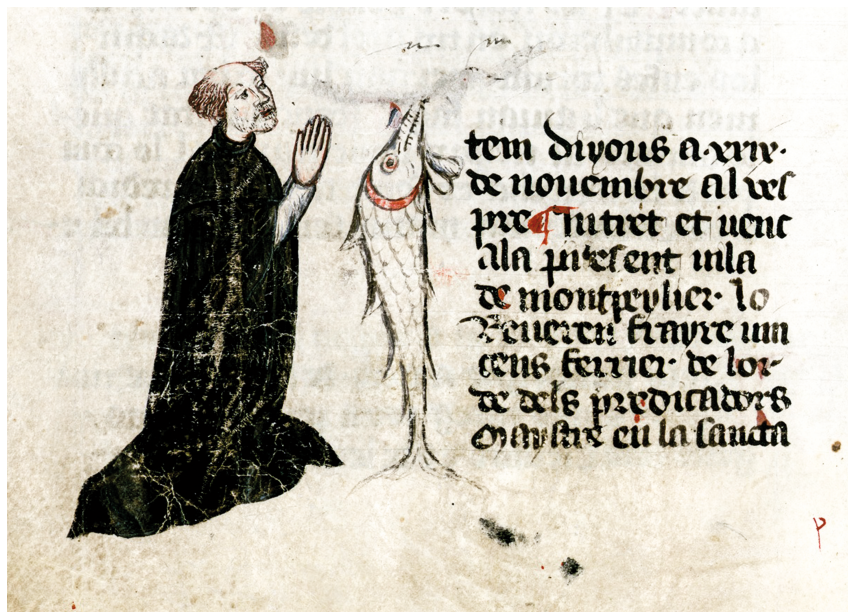 tem diyous a·xxix·
de nouembre al ves
pre Intret et uenc
ala present uila
de montpeylier· lo
Reueren frayre uin
cens ferrier· de lor
de dels predicadors
Maystre en la sancta
p